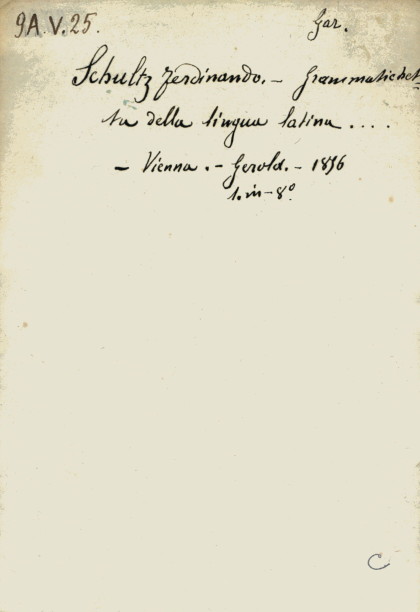 9A.V.25.
Gar.
Schultz Ferdinando. – Grammatichet=
ta della lingua latina ....
– Vienna. – Gerold. – 1856
1. in-8º
C